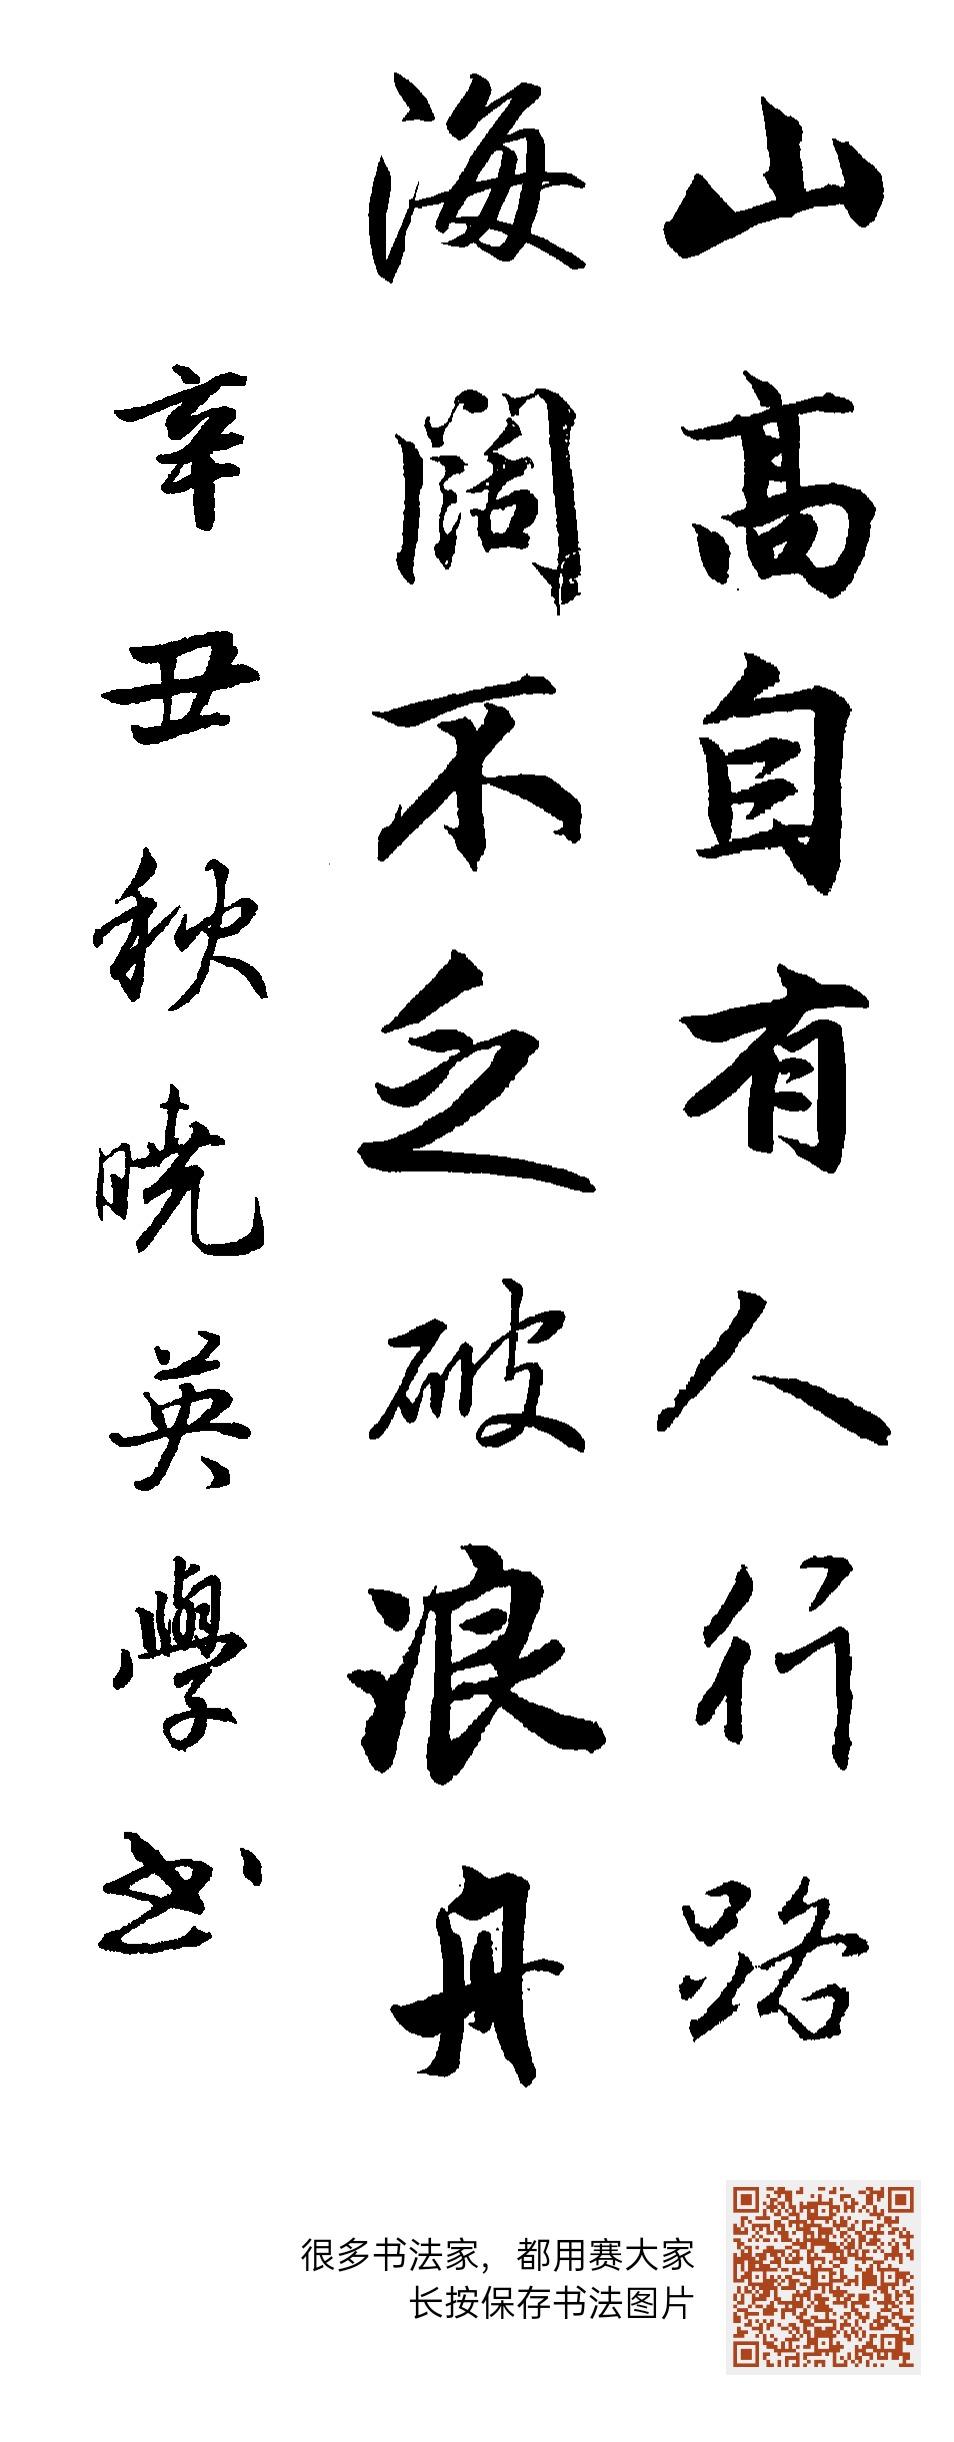 山高自有人行路
海阔不乏破浪舟
辛丑秋晓英學书
很多书法家，都用赛大家
长按保存书法图片